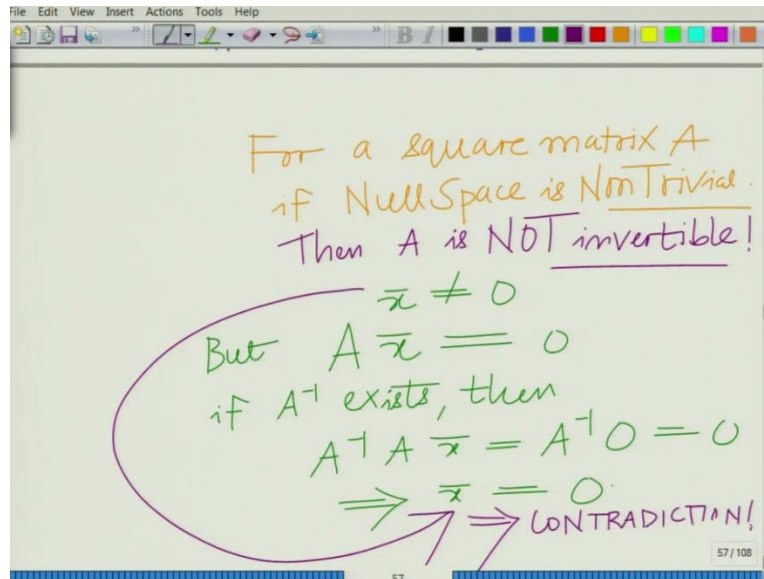 File Edit View Insert Actions Tools Help
B I
For a square matrix A
if NullSpace is NonTrivial.
Then A is NOT invertible!
x̄ ≠ 0
But A x̄ = 0
if A⁻¹ exists, then
A⁻¹ A x̄ = A⁻¹ 0 = 0
⇒ x̄ = 0.
⇒ CONTRADICTION!
57 / 108
57